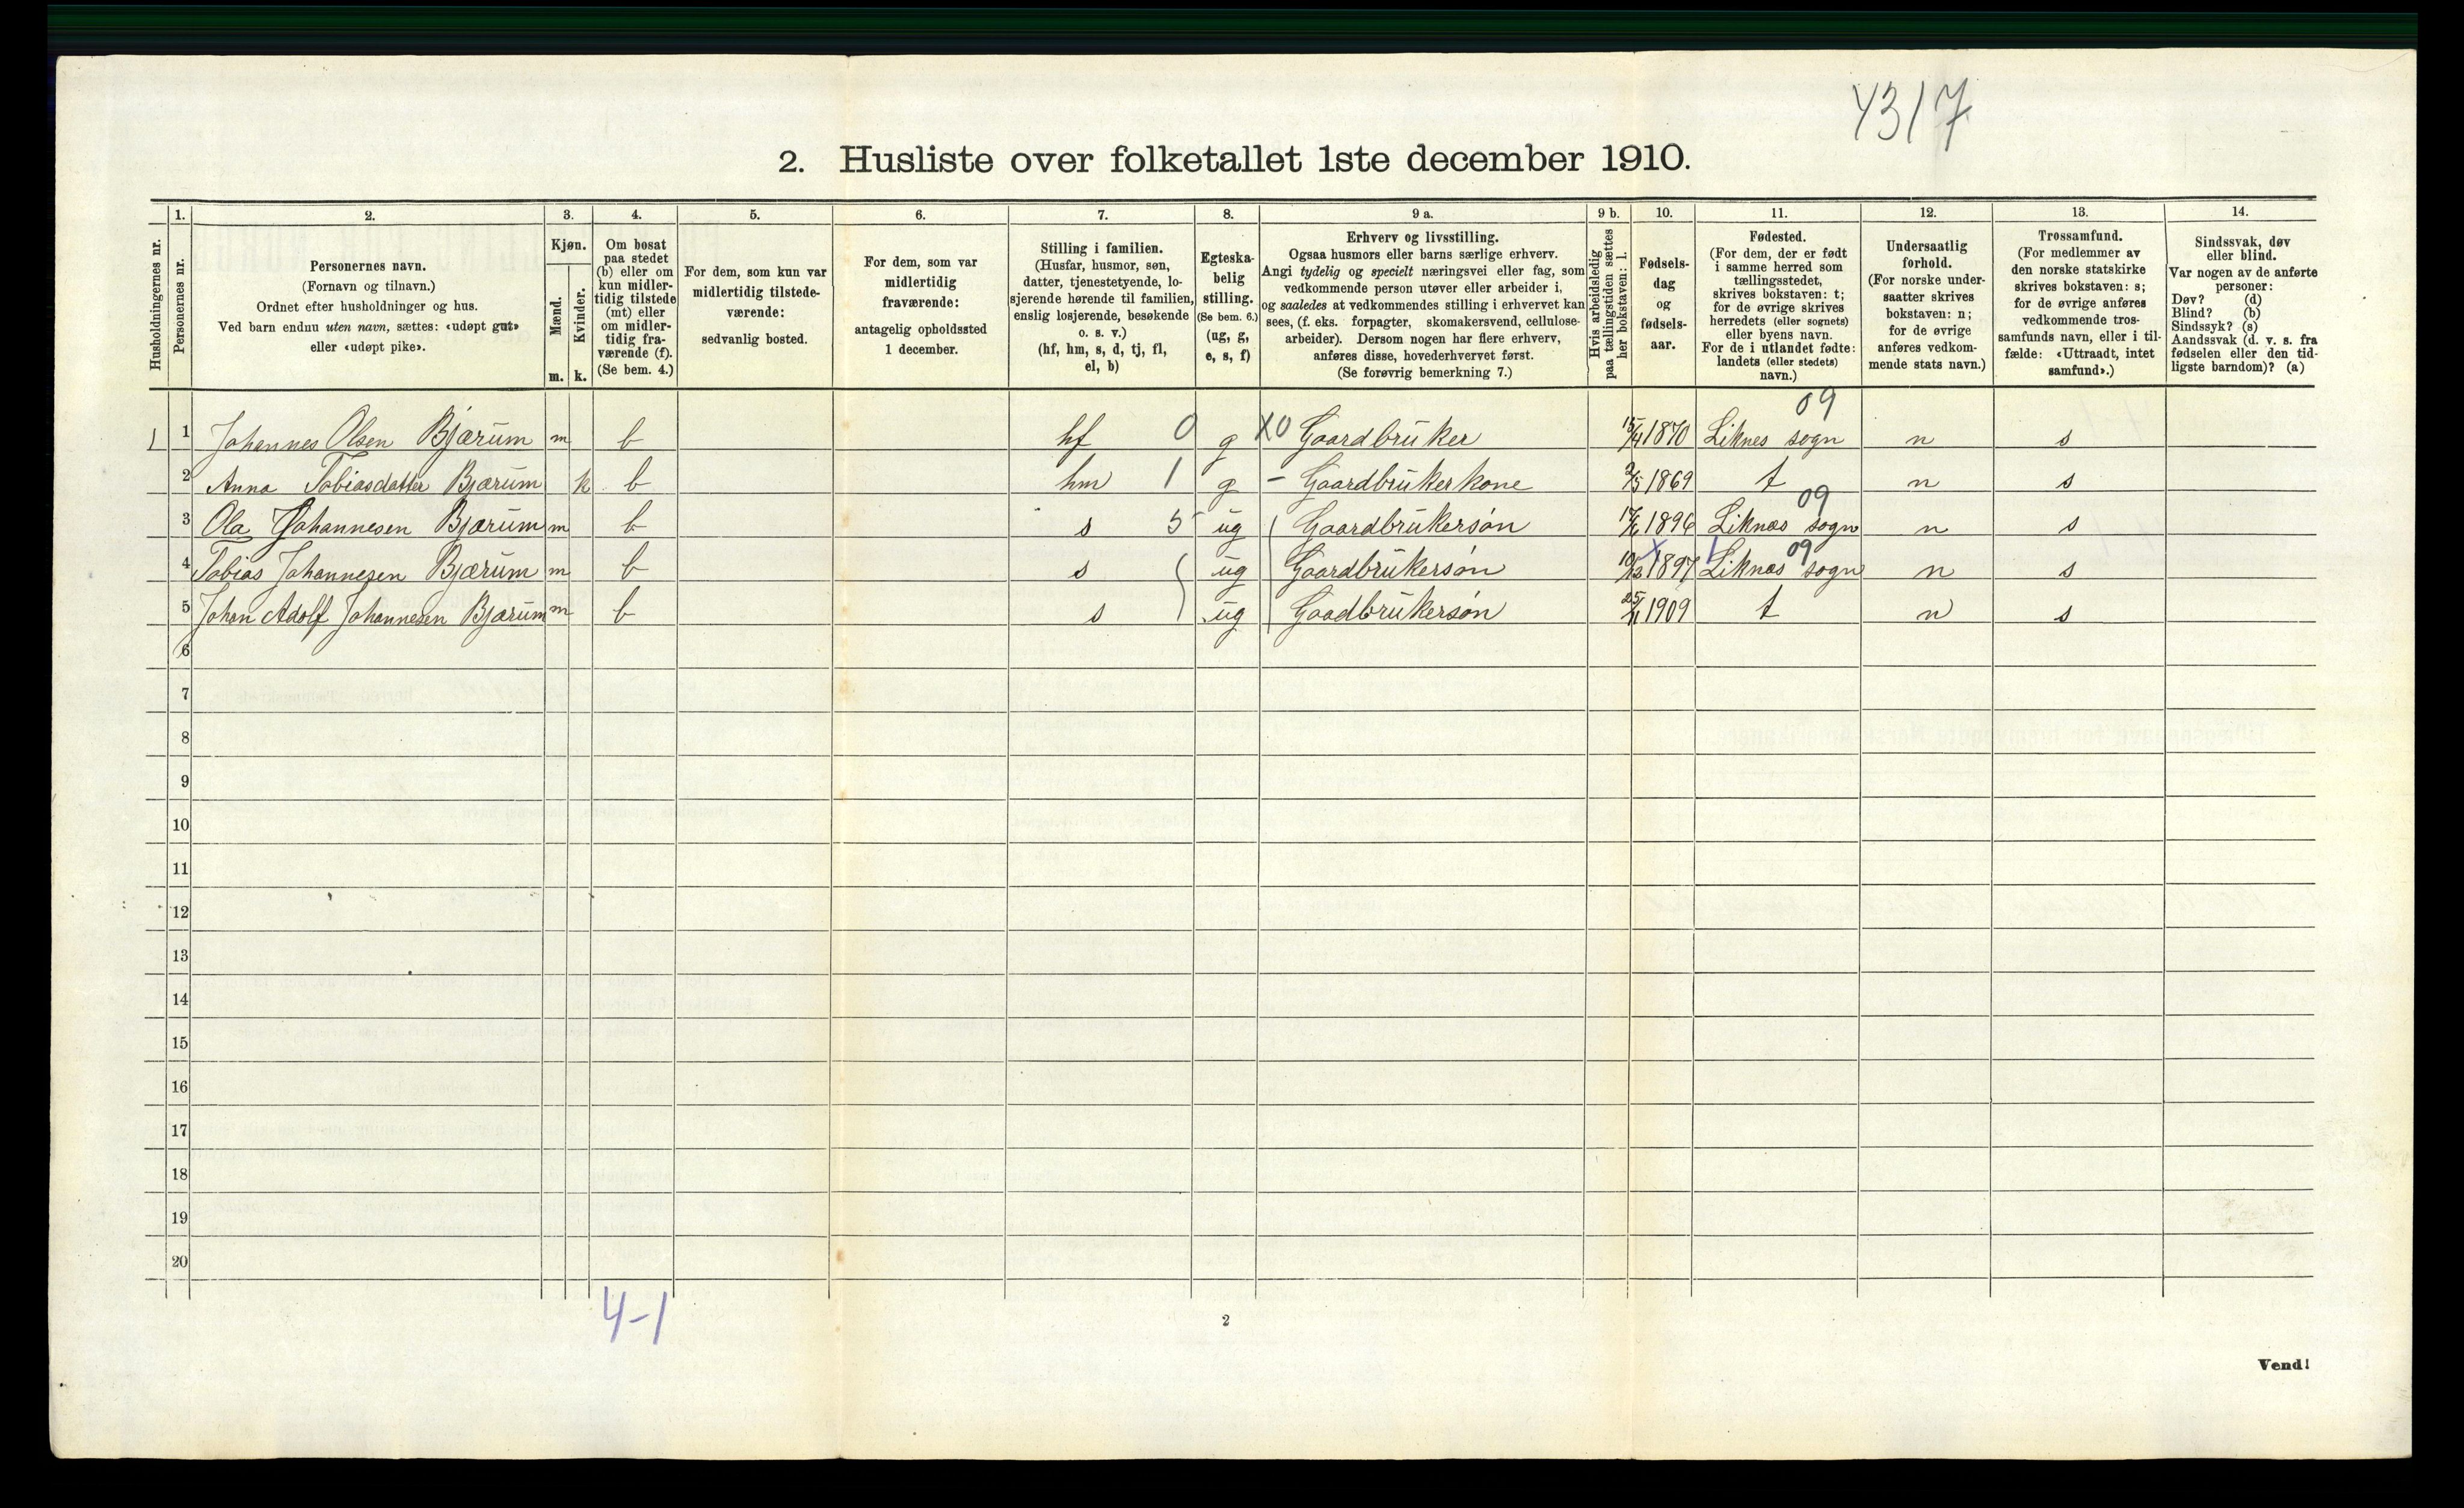 4317
2. Husliste over folketallet 1ste december 1910.
Husholdningernes nr.
1. Personernes nr.
2. Personernes navn. (Fornavn og tilnavn.) Ordnet efter husholdninger og hus. Ved barn endnu uten navn, sættes: «udøpt gut» eller «udøpt pike».
3. Kjøn. Mænd. m. Kvinder. k.
4. Om bosat paa stedet (b) eller om kun midlertidig tilstede (mt) eller om midlertidig fraværende (f). (Se bem. 4.)
5. For dem, som kun var midlertidig tilstedeværende: sedvanlig bosted.
6. For dem, som var midlertidig fraværende: antagelig opholdssted 1 december.
7. Stilling i familien. (Husfar, husmor, søn, datter, tjenestetyende, losjerende hørende til familien, enslig losjerende, besøkende o. s. v.) (hf, hm, s, d, tj, fl, el, b)
8. Egteskabelig stilling. (Se bem. 6.) (ug, g, e, s, f)
9 a. Erhverv og livsstilling. Ogsaa husmors eller barns særlige erhverv. Angi tydelig og specielt næringsvei eller fag, som vedkommende person utøver eller arbeider i, og saaledes at vedkommendes stilling i erhvervet kan sees, (f. eks. forpagter, skomakersvend, cellulosearbeider). Dersom nogen har flere erhverv, anføres disse, hovederhvervet først. (Se forøvrig bemerkning 7.)
9 b. Hvis arbeidsledig paa tællingstiden sættes her bokstaven: l.
10. Fødselsdag og fødselsaar.
11. Fødested. (For dem, der er født i samme herred som tællingsstedet, skrives bokstaven: t; for de øvrige skrives herredets (eller sognets) eller byens navn. For de i utlandet fødte: landets (eller stedets) navn.)
12. Undersaatlig forhold. (For norske undersaatter skrives bokstaven: n; for de øvrige anføres vedkommende stats navn.)
13. Trossamfund. (For medlemmer av den norske statskirke skrives bokstaven: s; for de øvrige anføres vedkommende trossamfunds navn, eller i tilfælde: «Uttraadt, intet samfund».)
14. Sindssvak, døv eller blind. Var nogen av de anførte personer: Døv? (d) Blind? (b) Sindssyk? (s) Aandssvak (d. v. s. fra fødselen eller den tidligste barndom)? (a)
09
1 1 Johannes Olsen Bjærum m b hf 0 g X0 Gaardbruker 15/4 1870 Liknes sogn n s
2 Anna Tobiasdatter Bjærum k b hm 1 g - Gaardbrukerkone 2/5 1869 t n s
09
3 Ola Johannesen Bjærum m b s 5 ug Gaardbrukersøn 1896 Liknæs sogn n s
09
4 Tobias Johannesen Bjærum m b s ug Gaardbrukersøn 1897 Liknæs sogn n s
5 Johan Adolf Johannesen Bjærum m b s ug Gaadbrukersøn 1909 t n s
6
7
8
9
10
11
12
13
14
15
16
17
18
19
20
4-1
2
Vend!